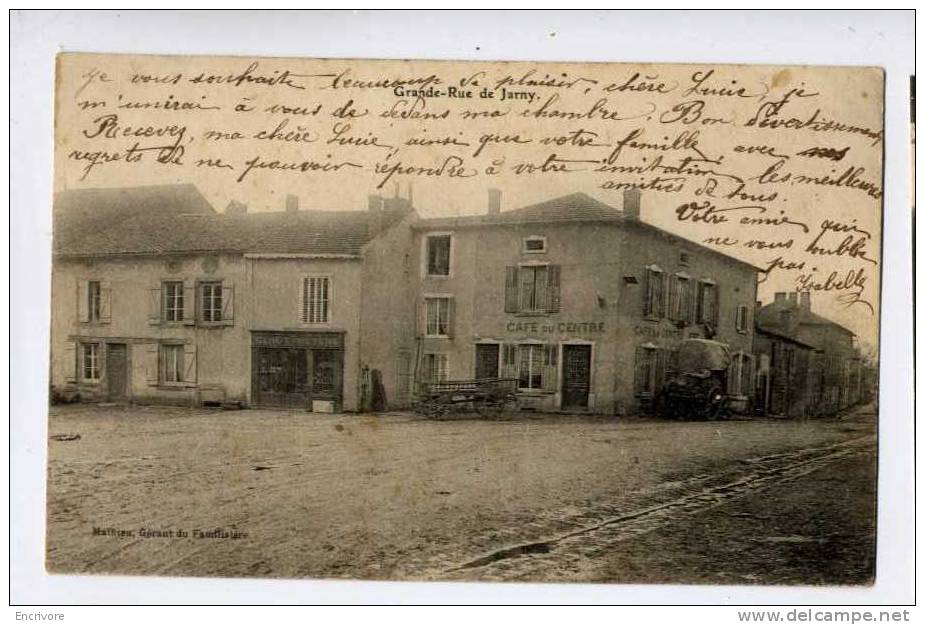 Je vous souhaite beaucoup de plaisir, chère Lucie, je
Grande-Rue de Jarny.
m'unirai à vous de dedans ma chambre. Bon divertissement,
Recevez, ma chère Lucie, ainsi que votre famille, avec
regrets de ne pouvoir répondre à votre invitation, les meilleures
amitiés de tous.
Votre amie qui
ne vous oublie
pas.
Ysabelle
CAFÉ DU CENTRE
CAFÉ DU CENTRE
Mathieu, Gérant du Familistère
Encrivore
www.delcampe.net